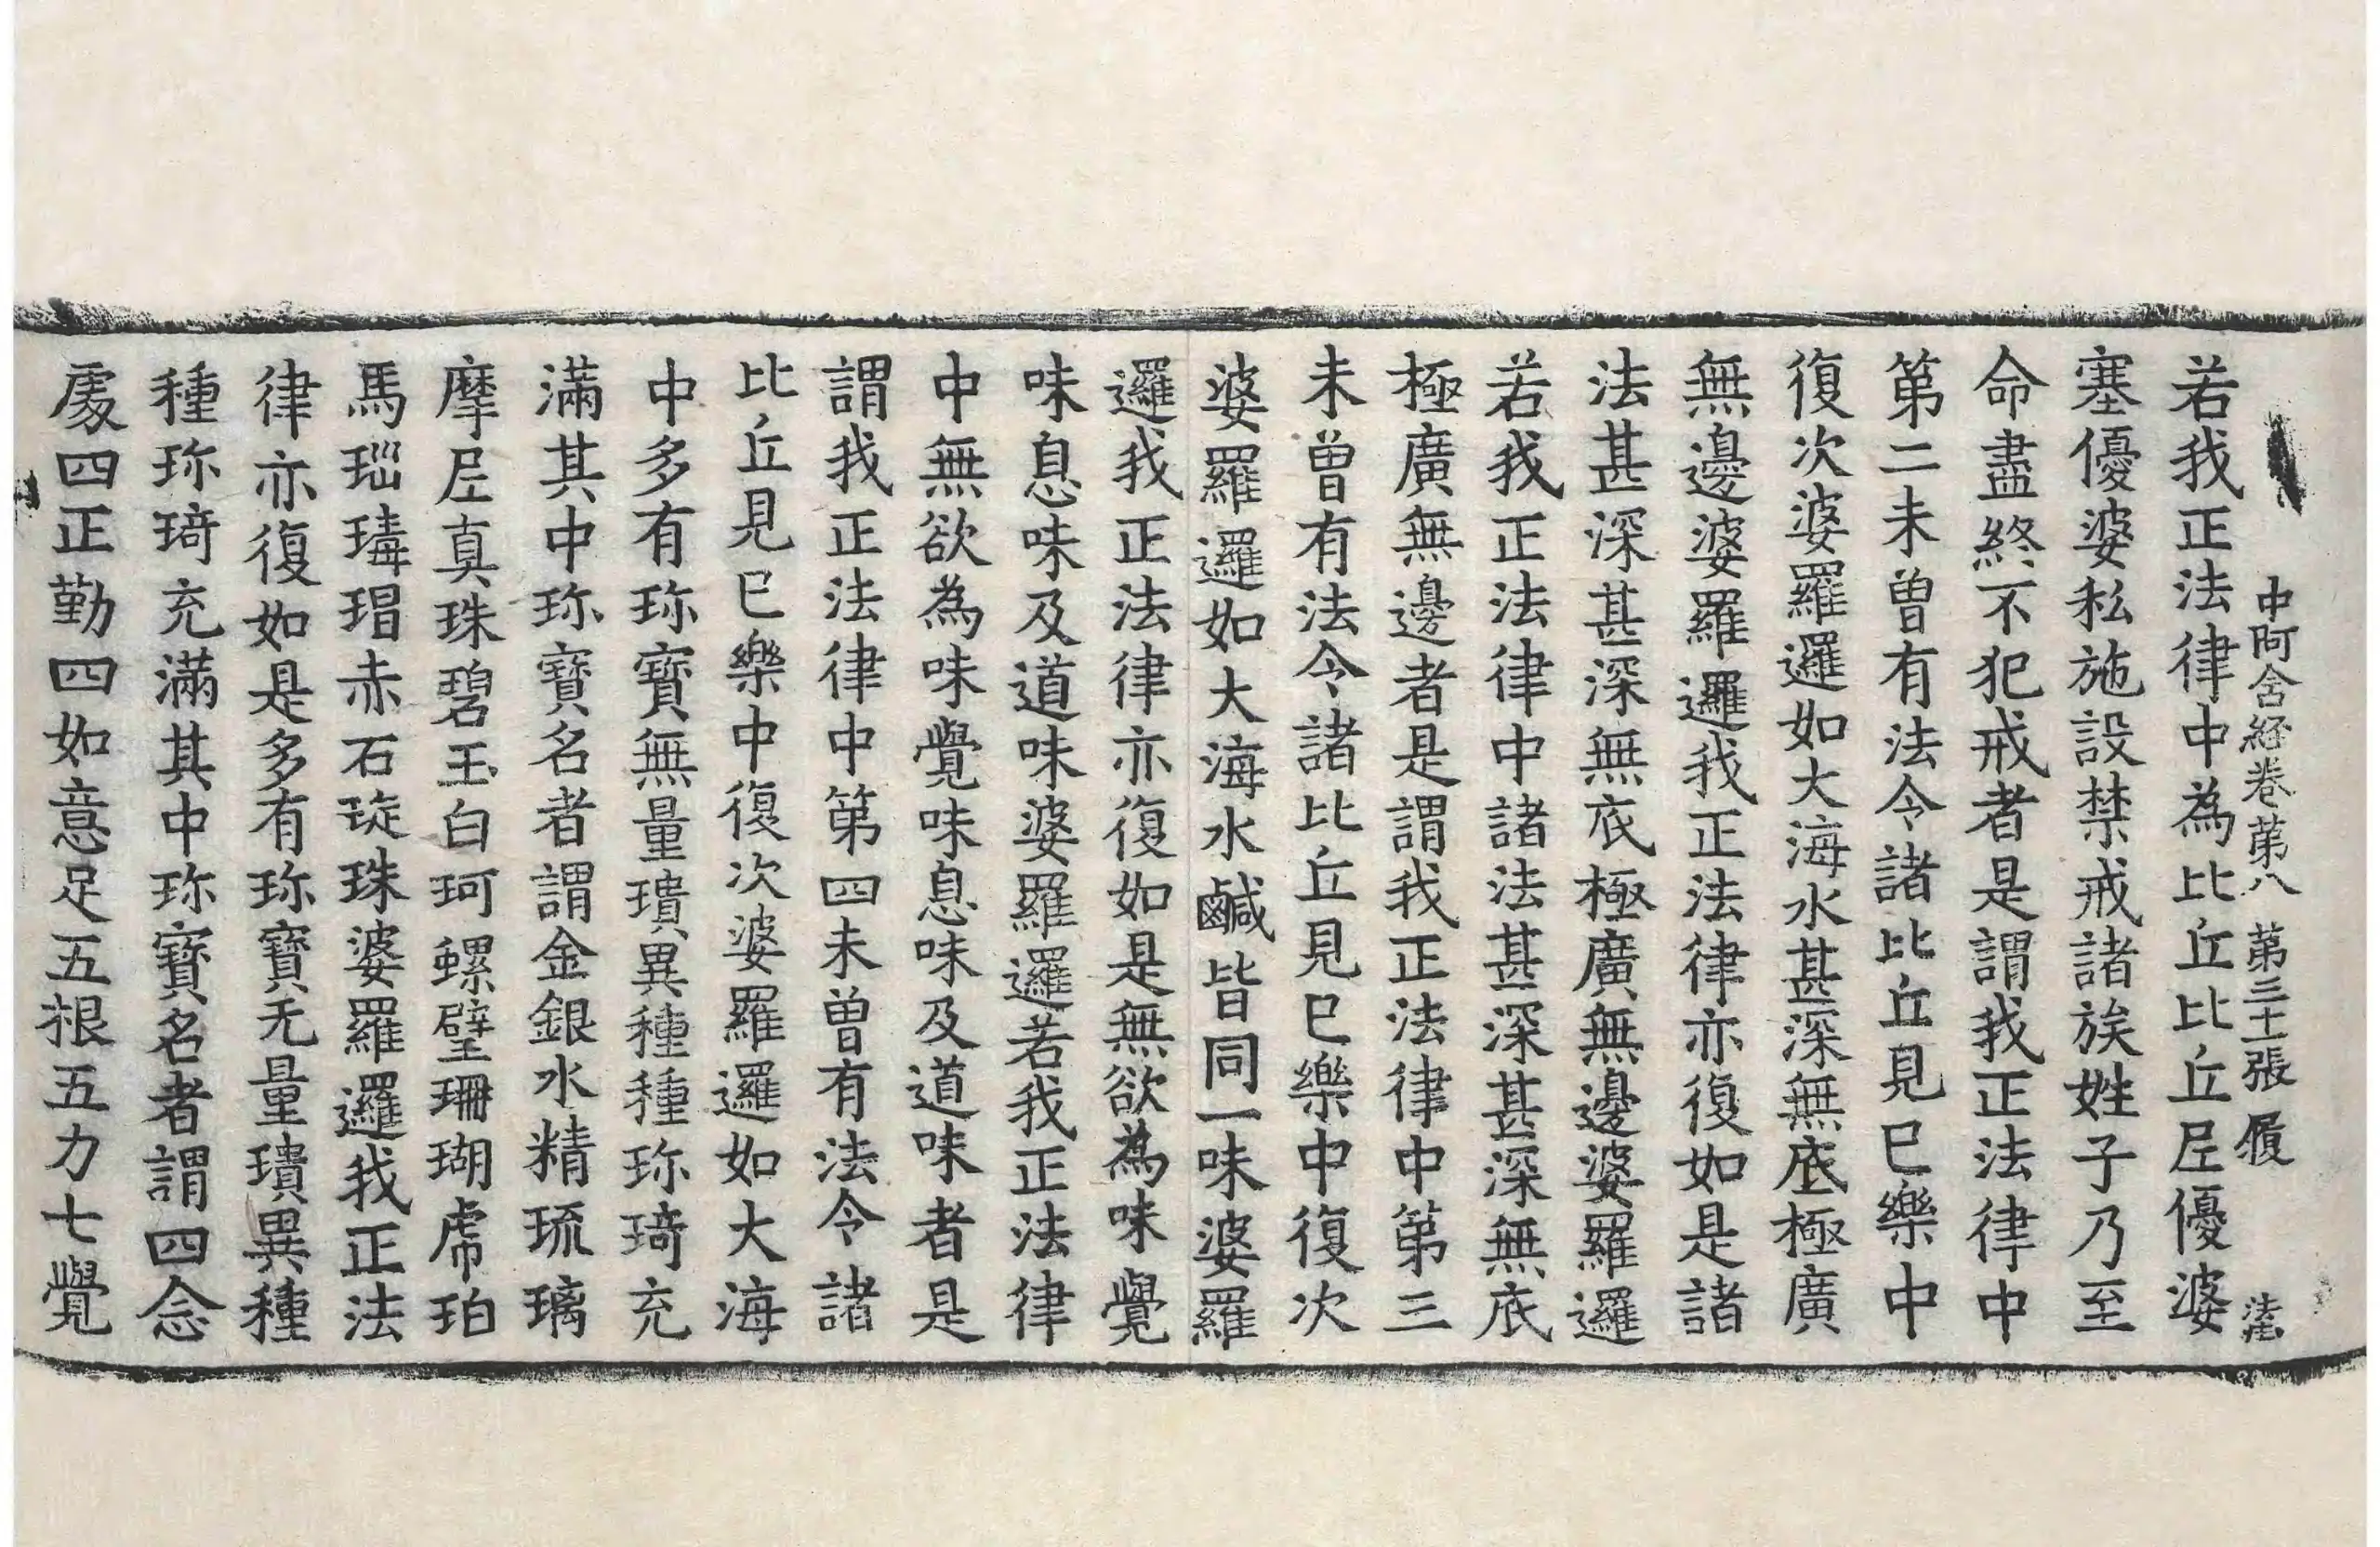 中阿含経卷苐八 苐三十一張 履
若我正法律中為比丘比丘𡰱優婆
塞優婆私施設禁戒諸族姓子乃至
命盡終不犯戒者是謂我正法律中
第二未曾有法令諸比丘見已樂中
復次婆羅邏如大海水甚深無底極廣
無邊婆羅邏我正法律亦復如是諸
法甚深甚深無底極廣無邊婆羅邏
若我正法律中諸法甚深甚深無底
極廣無邊者是謂我正法律中第三
未曾有法令諸比丘見已樂中復次
婆羅邏如大海水鹹皆同一味婆羅
邏我正法律亦復如是無欲為味覺
味息味及道味婆羅邏若我正法律
中無欲為味覺味息味及道味者是
謂我正法律中第四未曾有法令諸
比丘見已樂中復次婆羅邏如大海
中多有珎寶無量璝異種種珎琦充
滿其中珎寶名者謂金銀水精琉璃
摩𡰱真珠碧玉白珂螺璧珊瑚虎珀
馬瑙瑇瑁赤石琁珠婆羅邏我正法
律亦復如是多有珎寶无量璝異種
種珎琦充滿其中珎寶名者謂四念
處四正勤四如意足五根五力七覺